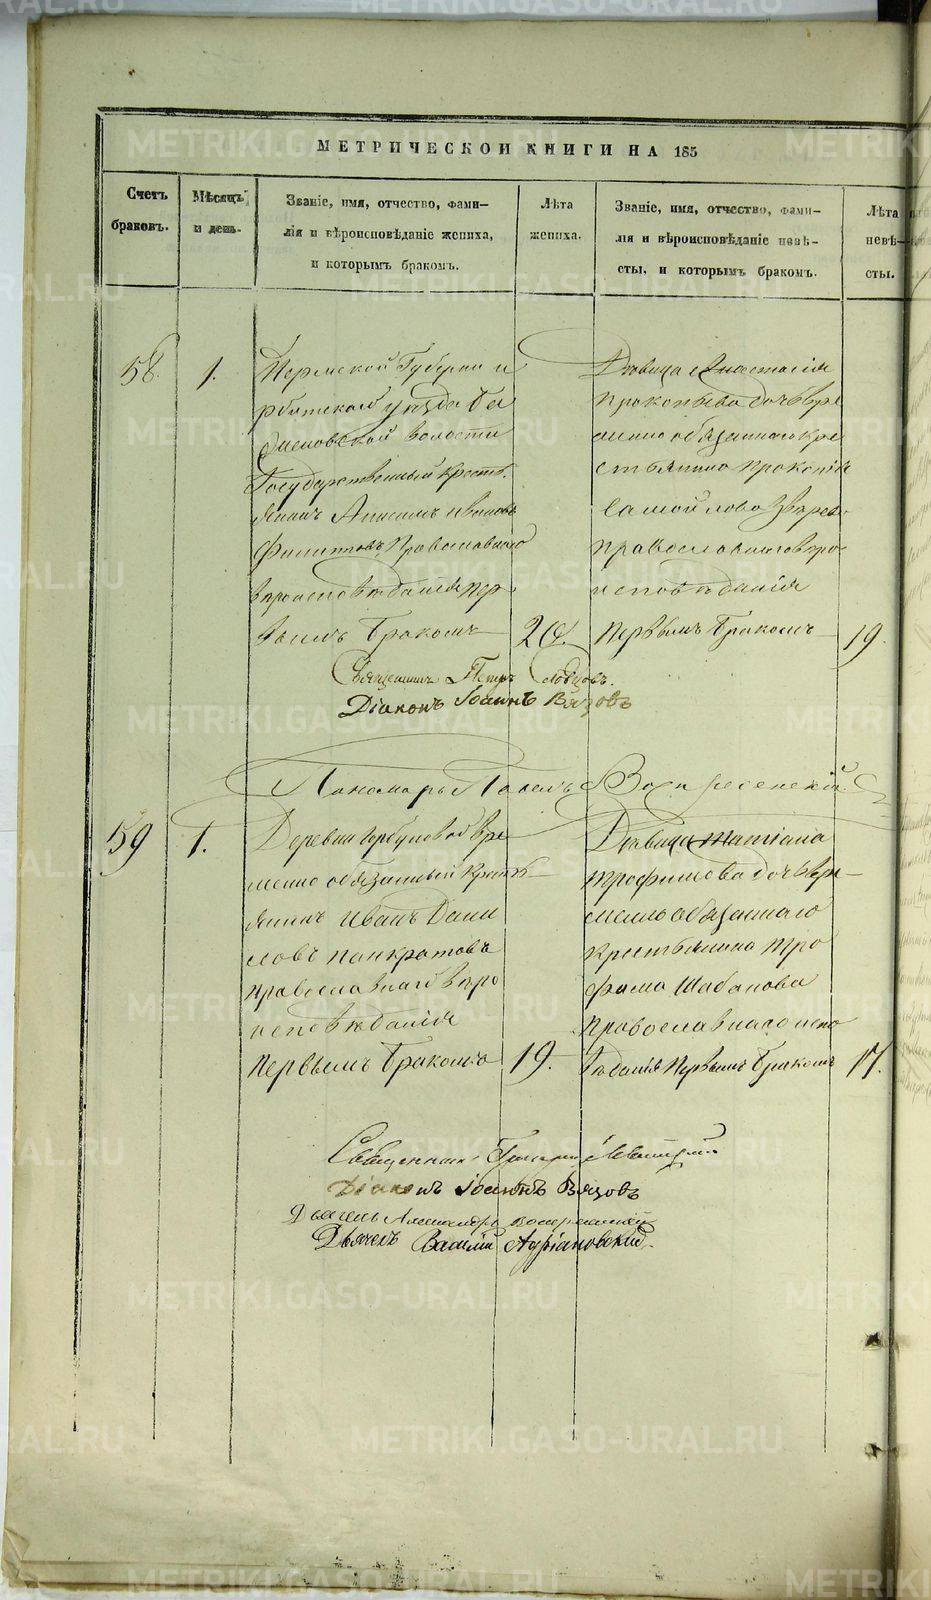 МЕТРИЧЕСКОЙ КНИГИ НА 185
Счетъ браковъ.
Мѣсяцъ и день.
Званіе, имя, отчество, фами-
лія и вѣроисповѣданіе жениха,
и которымъ бракомъ.
Лѣта
жениха.
Званіе, имя, отчество, фами-
лія и вѣроисповѣданіе невѣ-
сты, и которымъ бракомъ.
Лѣта
невѣ-
сты.
58. 1.
Пермской Губерніи и
рбитскаго уѣзда
волости
Государственный Кресть
янинъ Анисимъ Ивановъ
Филиповъ Православнаго
вѣроисповѣданія пер
вымъ бракомъ
Дѣвица Анастасія
Прокопьева дочь вре
менно обязаннаго кре
стьянина Прокопія
Самойлова Звѣрев
православнаго вѣро
исповѣданія
первымъ бракомъ
19.
Священникъ Петръ
Діаконъ Іоаннъ Вязовъ
Пономарь Павелъ Воскресенскій
59 1.
Деревни Горбуновой вре
менно обязанный Кресть
янинъ Иванъ Дани
ловъ Панкратовъ
православнаго вѣро
исповѣданія
Первымъ бракомъ
19.
Дѣвица Татіана
Трофимова дочь вре
менно обязаннаго
крестьянина Тро
фима Шабанова
Православнаго испо
вѣданія Первымъ бракомъ
17.
Священникъ Григорій Левитскій
Діаконъ Іоаннъ Вязовъ
Дьячекъ Александръ
Дьячекъ Василій Адріановскій.
METRIKI.GASO-URAL.RU